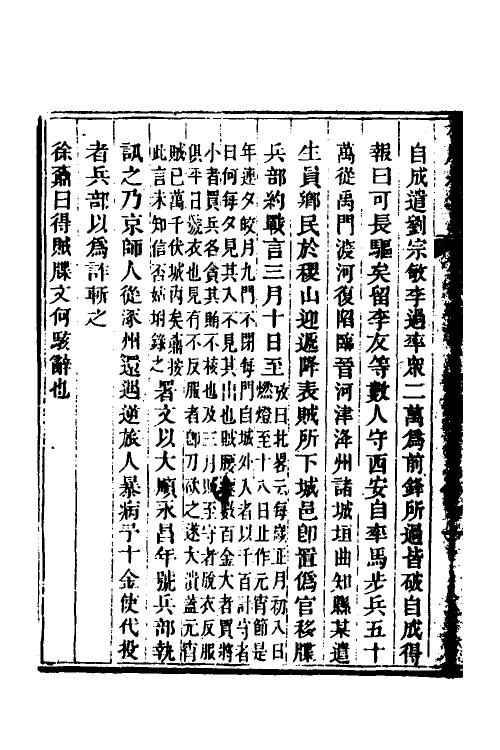 自成遣劉宗敏李過率衆二萬爲前鋒所過皆破自成得
報曰可長驅矣留李友等數人守西安自率馬步兵五十
萬從禹門渡河復陷臨晉河津絳州諸城垣曲知縣某遣
生員鄉民於稷山迎遞降表賊所下城邑卽置僞官移牒
兵部約戰言三月十日至
攷曰北畧元每歲正月初入日
燃燈至十八日止作元宵節是
年連夕皎月九門不閉每門自城外入者以千百計守者
曰何每夕見其入不見其出也賊腰 數百金大者買將
小者買兵各貪其賄不核也及三月賊至守者脫衣反服
俱平日 衣也見有不反服者卽刀砍之遂大潰蓋元宵
賊已萬千伏城内矣鼒按
此言未知信否姑附錄之
署文以大順永昌年號兵部執
訊之乃京師人從涿州還遇逆旅人暴病予十金使代投
者兵部以爲詐斬之
徐鼒曰得賊牒文何駭辭也